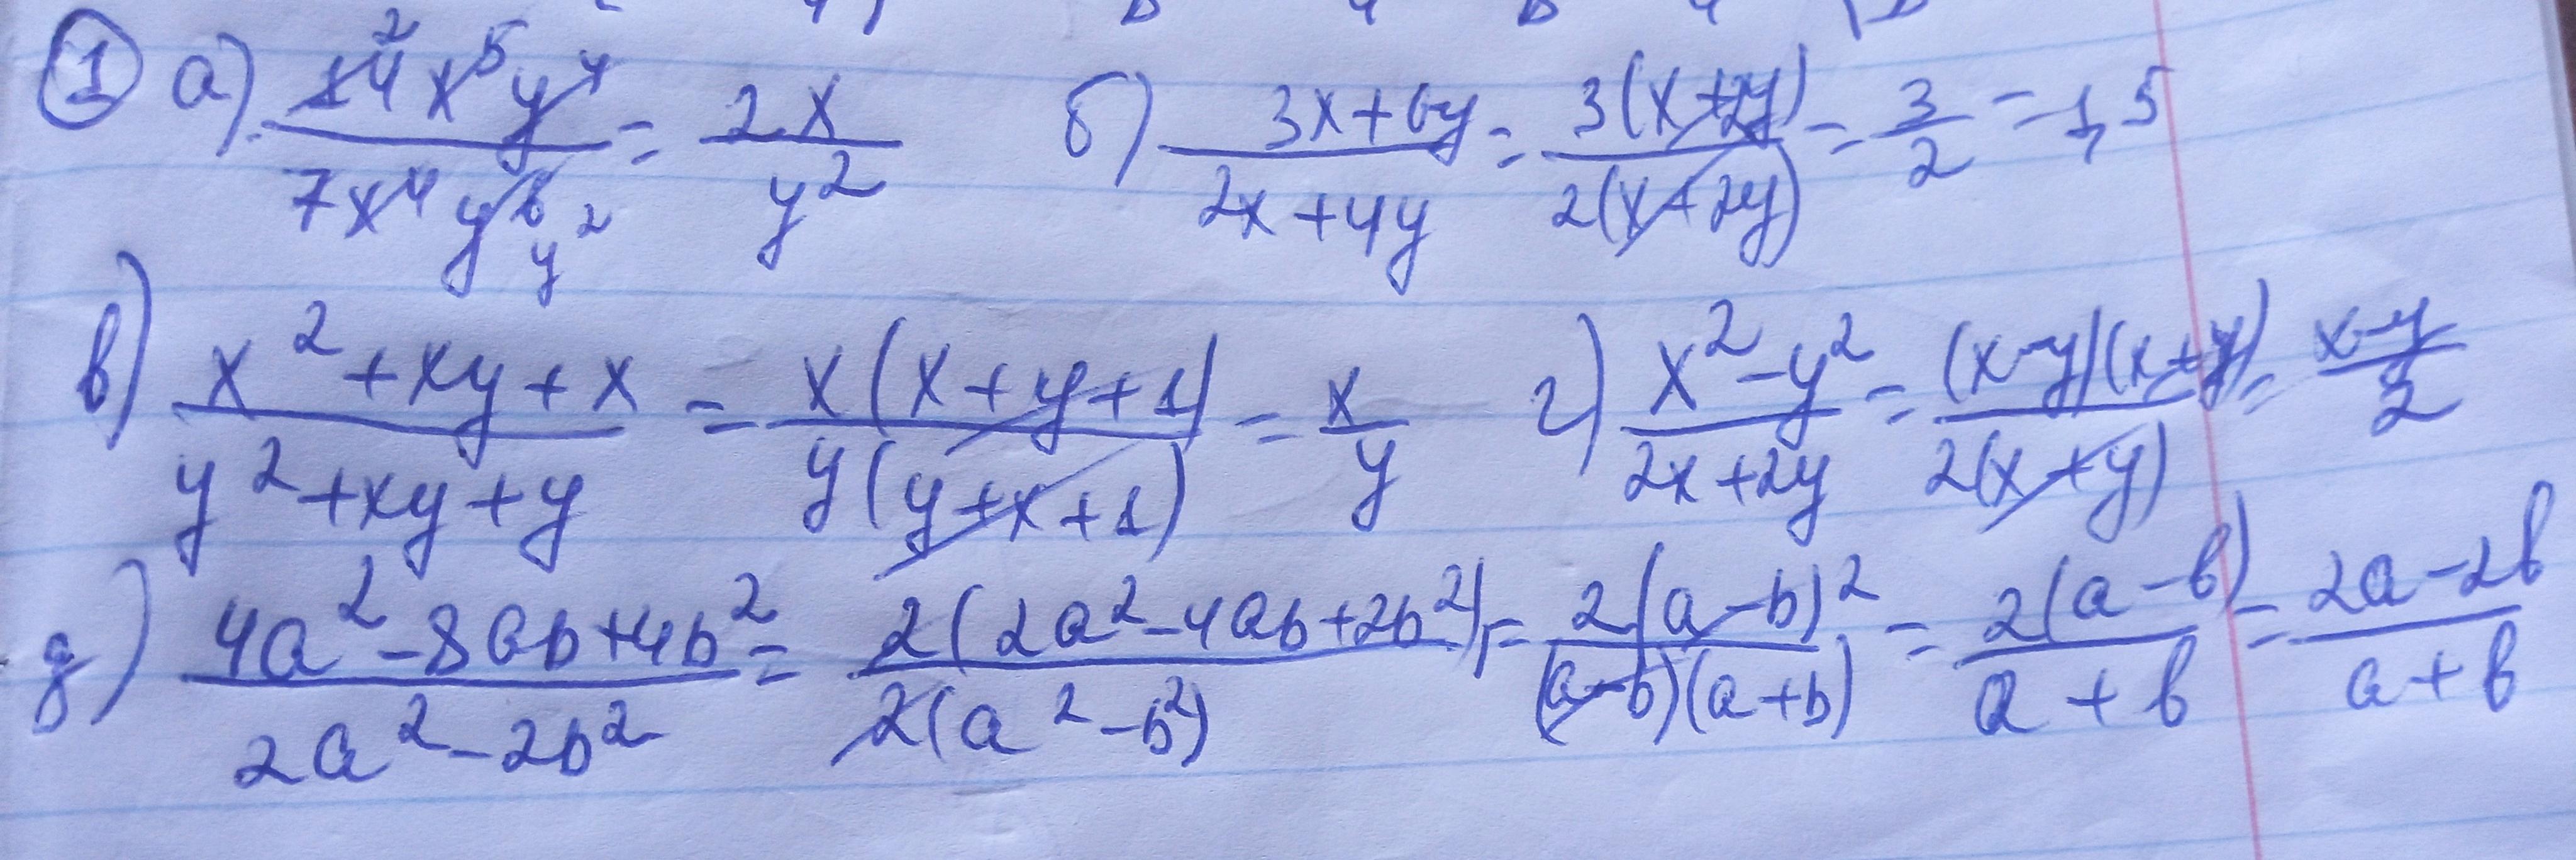 ① а) 14x⁵y⁴ / 7x⁴y⁶ = 2x / y² б) 3x+6y / 2x+4y = 3(x+2y) / 2(x+2y) = 3/2 = 1,5
в) x²+xy+x / y²+xy+y = x(x+y+1) / y(y+x+1) = x/y г) x²-y² / 2x+2y = (x-y)(x+y) / 2(x+y) = x-y / 2
д) 4a²-8ab+4b² / 2a²-2b² = 2(2a²-4ab+2b²) / 2(a²-b²) = 2(a-b)² / (a-b)(a+b) = 2(a-b) / a+b = 2a-2b / a+b